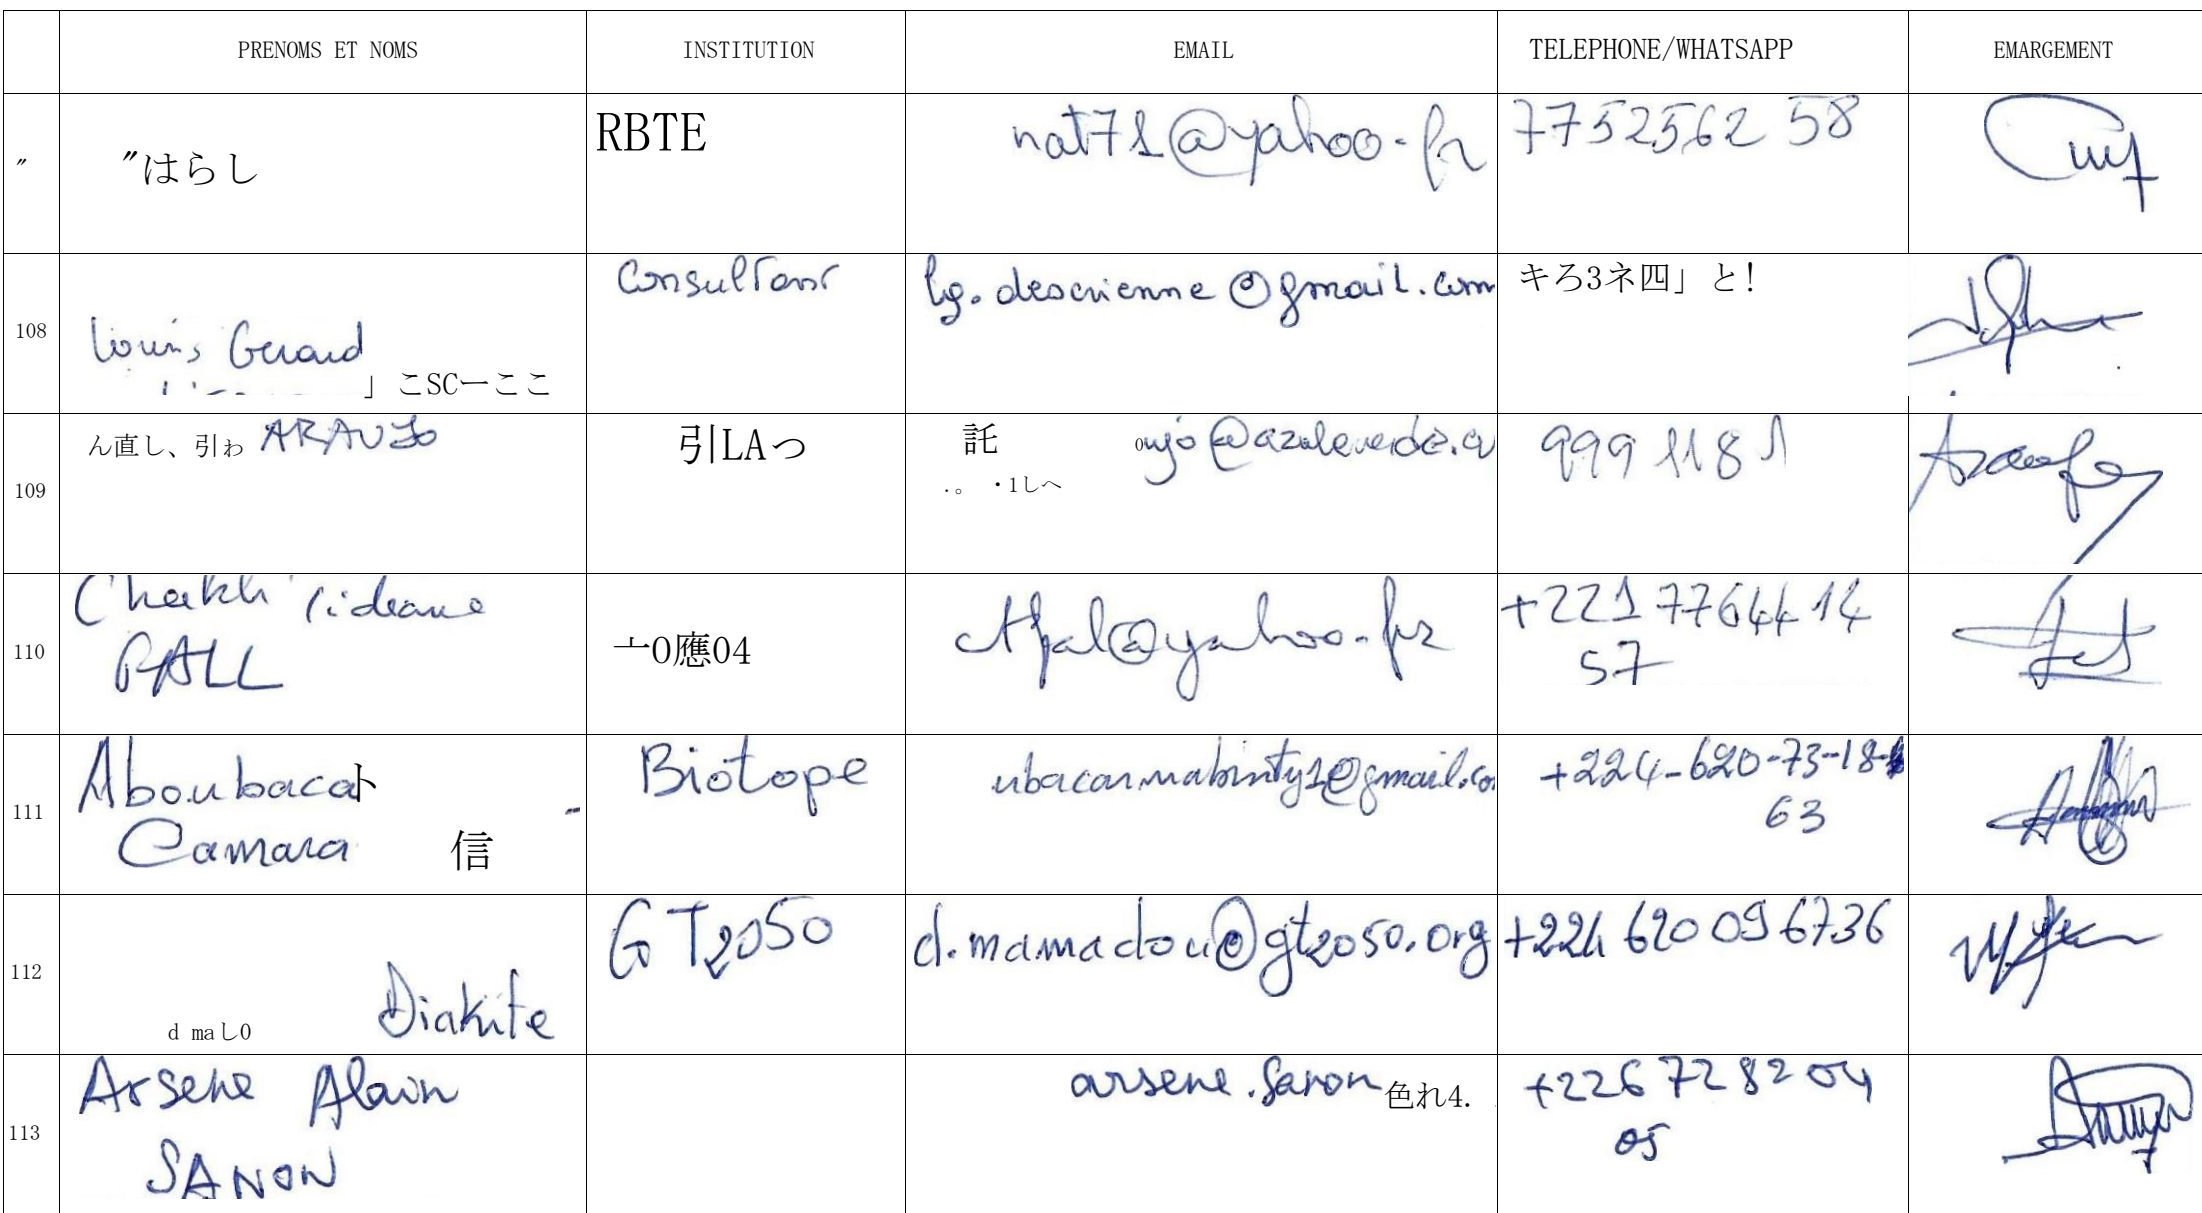 PRENOMS ET NOMS INSTITUTION EMAIL TELEPHONE/WHATSAPP EMARGEMENT
〃 〃はらし RBTE nat71@yahoo.fr 775256258
108 Louis Gerard 」こSCーここ Consultant lg.descrienne@gmail.com キろ3ネ四」と!
109 ん直し、引ゎ ARAUJO 引LAっ 託 oujo@azuleverde.cv 9991181
.。 ・1しへ
110 Cheikh Tidiane FALL 亠0應04 ctfal@yahoo.fr +221776441457
111 Aboubacaト Camara 信 Biotope ubacarmabinty1@gmail.co +224-620-73-18-63
112 d maし0 Diakite GT2050 d.mamadou@gt2050.org +224 620 09 6736
113 Arsene Alain SANON arsene.sanon 色れ4. +226 72 82 04 05